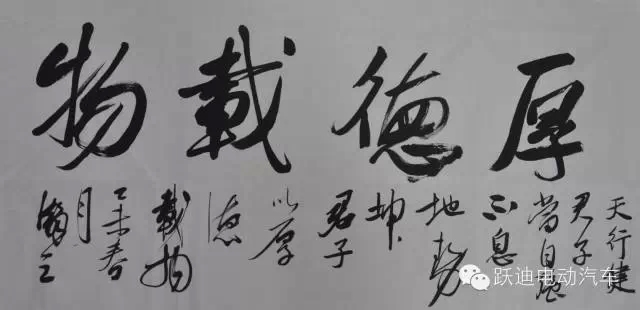 厚德載物
天行健
君子
當自强
不息
地勢
坤
君子
以厚
德
載物
乙未春
月
跃迪电动汽车